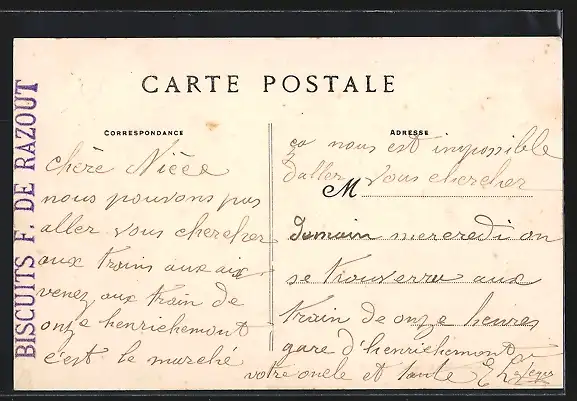 CARTE POSTALE
BISCUITS F. DE RAZOUT
CORRESPONDANCE
chère Nièce
nous pouvons pas
aller vous chercher
aux trains aux aix
venez aux train de
onze henrichemont
c'est le marché
ADRESSE
ça nous est impossible
daller vous chercher
M
demain mercredi on
se trouverra aux
train de onze heures
gare d'henrichemont
votre oncle et tante